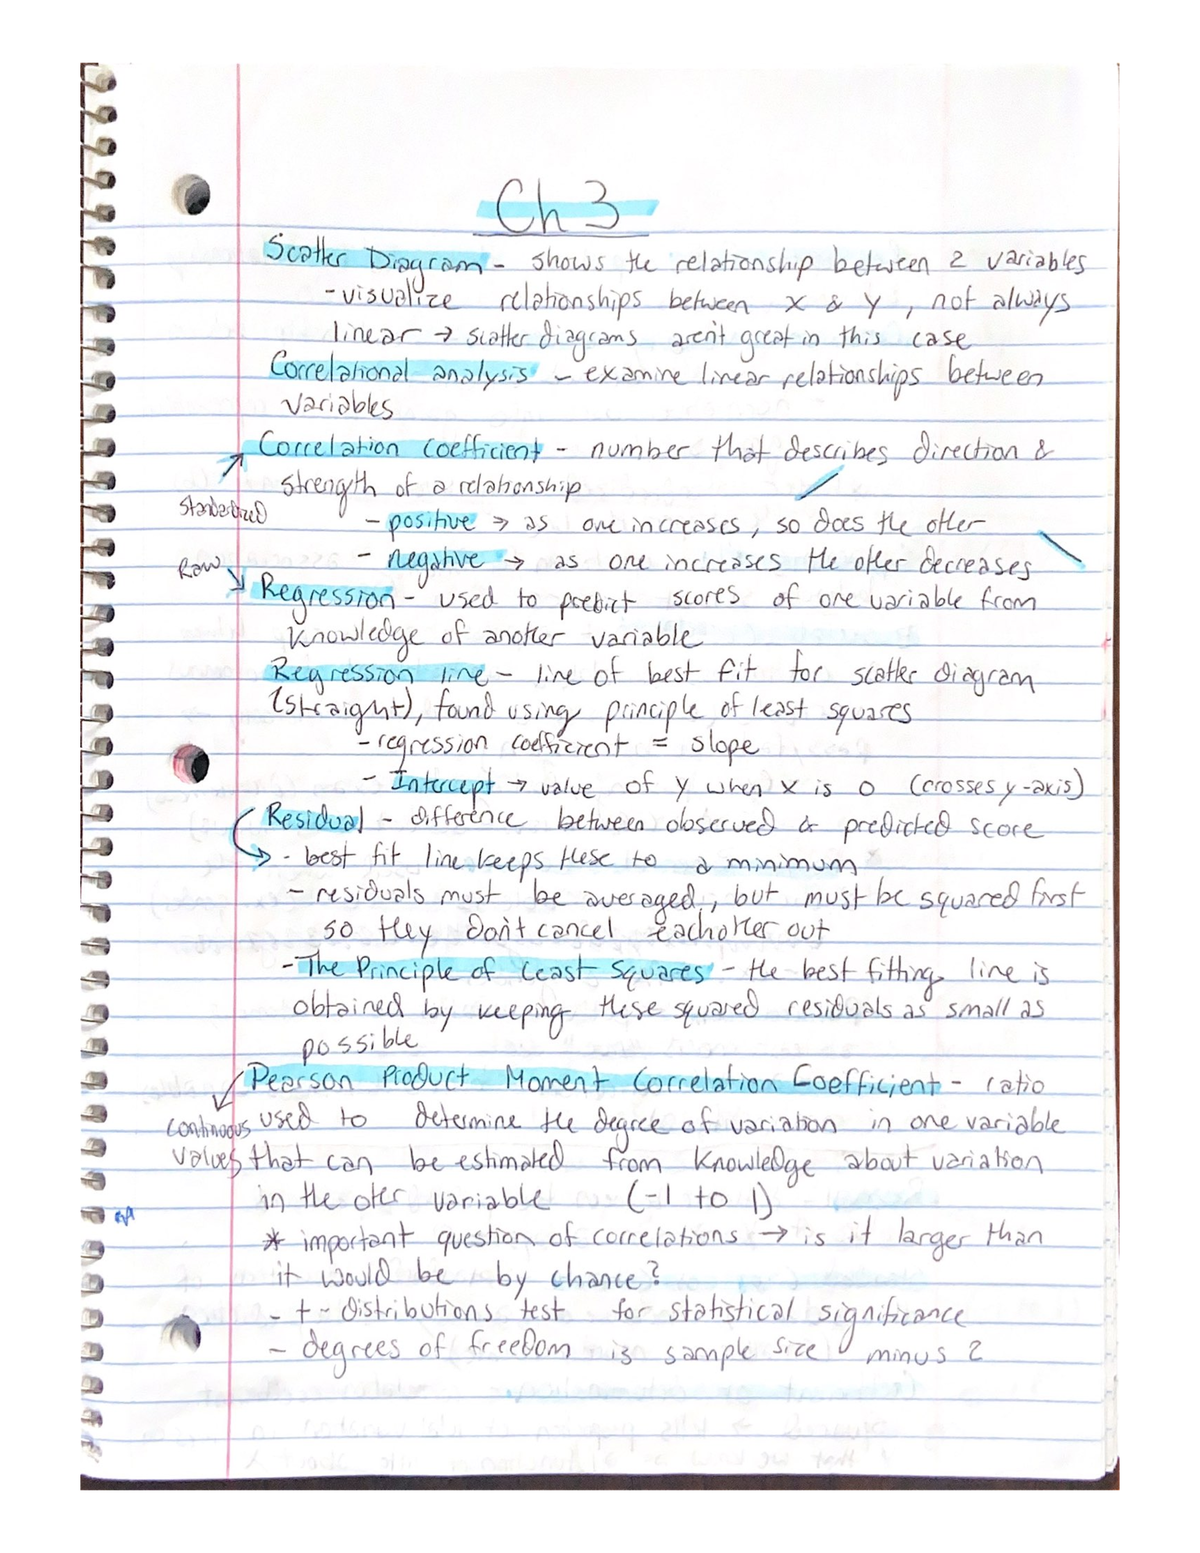 Ch 3
Scatter Diagram - shows the relationship between 2 variables
- visualize relationships between X & Y, not always
linear → scatter diagrams aren't great in this case
Correlational analysis - examine linear relationships between
variables
Correlation Coefficient - number that describes direction &
strength of a relationship
Standardized
- positive → as one increases, so does the other
- negative → as one increases the other decreases
Raw
Regression - used to predict scores of one variable from
knowledge of another variable
Regression line - line of best fit for scatter diagram
(straight), found using principle of least squares
- regression coefficient = slope
- Intercept → value of y when x is 0 (crosses y-axis)
Residual - difference between observed & predicted score
- best fit line keeps these to a minimum
- residuals must be averaged, but must be squared first
so they don't cancel eachother out
- The Principle of Least Squares - the best fitting line is
obtained by keeping these squared residuals as small as
possible
Pearson Product Moment Correlation Coefficient - ratio
continuous used to determine the degree of variation in one variable
values that can be estimated from knowledge about variation
in the oter variable (-1 to 1)
* important question of correlations → is it larger than
it would be by chance?
- t - distributions test for statistical significance
- degrees of freedom is sample size minus 2